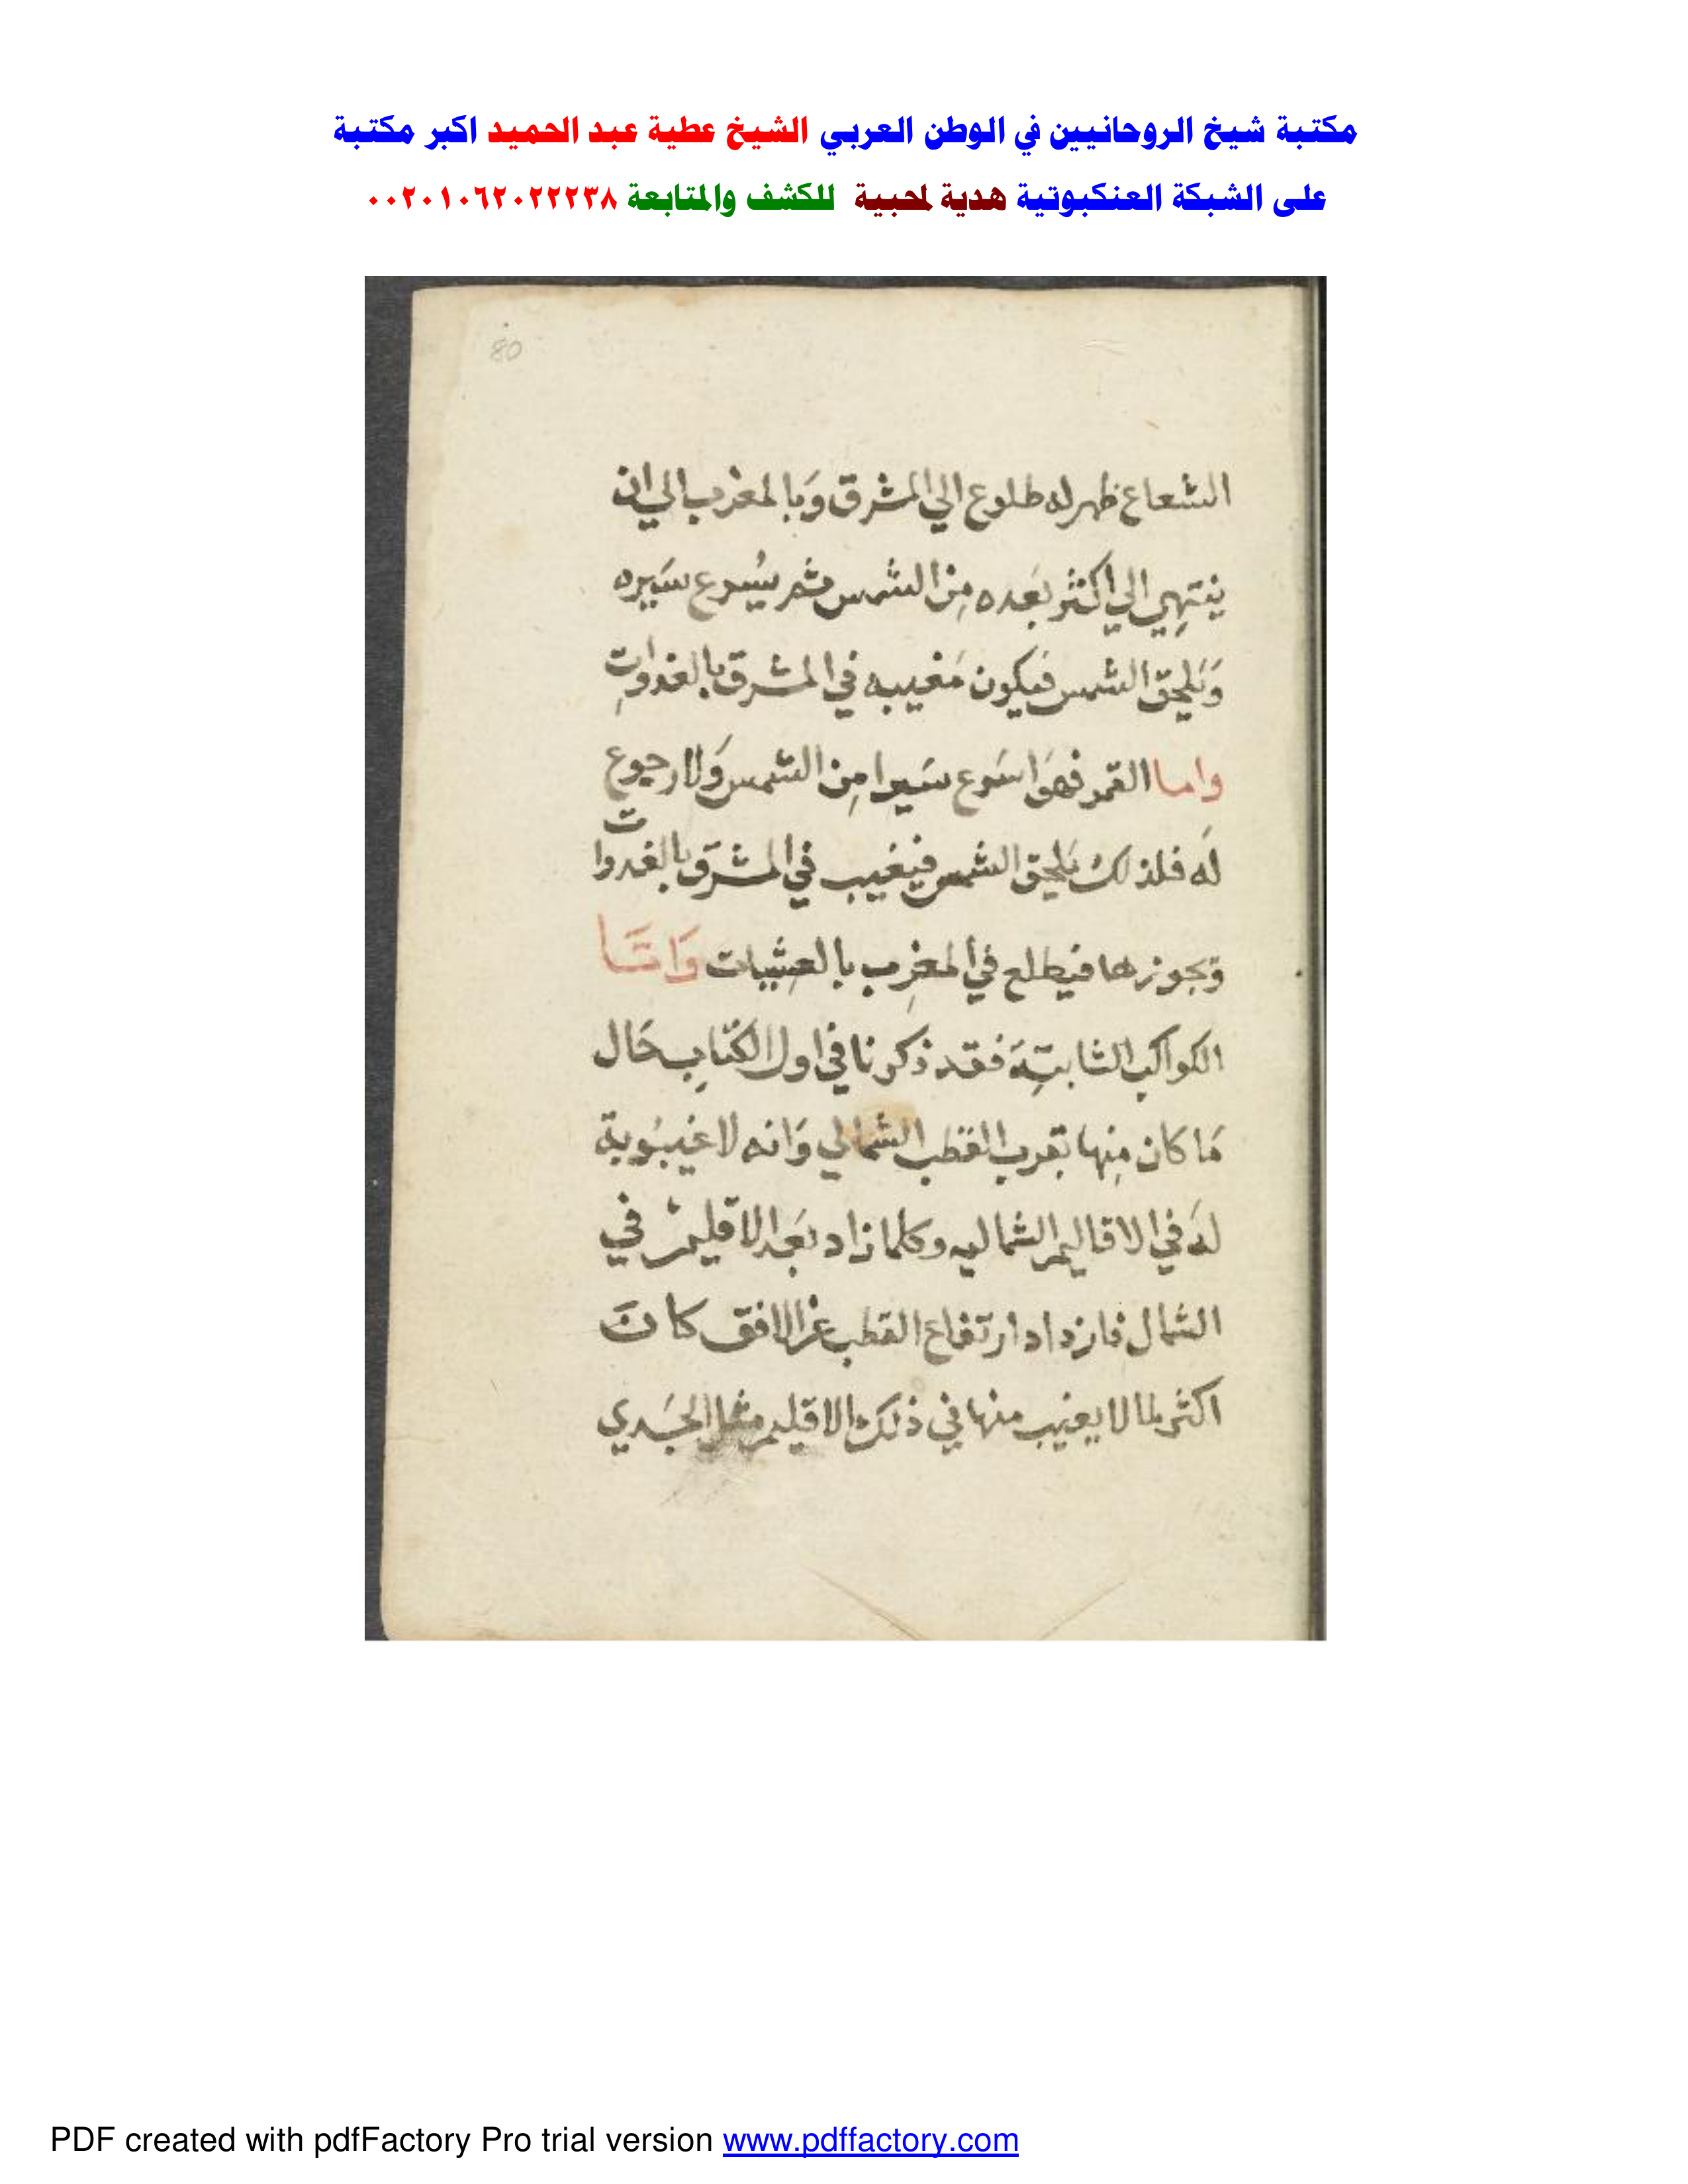 مكتبة شيخ الروحانيين في الوطن العربي الشيخ عطية عبد الحميد اكبر مكتبة
على الشبكة العنكبوتية هدية لمحبية للكشف والمتابعة ٠٠٢٠١٠٦٢٠٢٢٢٣٨
80
الشعاع ظهر له طلوع الي المشرق وَبالمغرب الي ان
ينتهِي الي اكثر بَعده مِن الشمس ثم يسُرع سَيره
وَيَلحق الشمس فيكون مَغيبه في المشرق بالغدواتِ
واما القمر فهوَ اسَرع سَيرا مِن الشمس وَلا رجوع
لَه فلذلك يَلحق الشمس فيغيب في المشرَق بالغدوات
وَيجوزها فيطلع في المغِرب بالعشِيات وَامَّا
الكواكب الثابتِهَ فقد ذكرنا في اول الكتابِ حَال
مَا كان مِنها بقرب القطب الشمالي وَانه لا غيبَوبة
لهَ في الاقاليم الشماليه وكلما زاد بَعد الاقليم في
الشمال فازداد ارتفاع القطب عن الافق كانَ
اكثر لما لا يغيب منها في ذلك الاقليم مثل الجَدي
PDF created with pdfFactory Pro trial version www.pdffactory.com